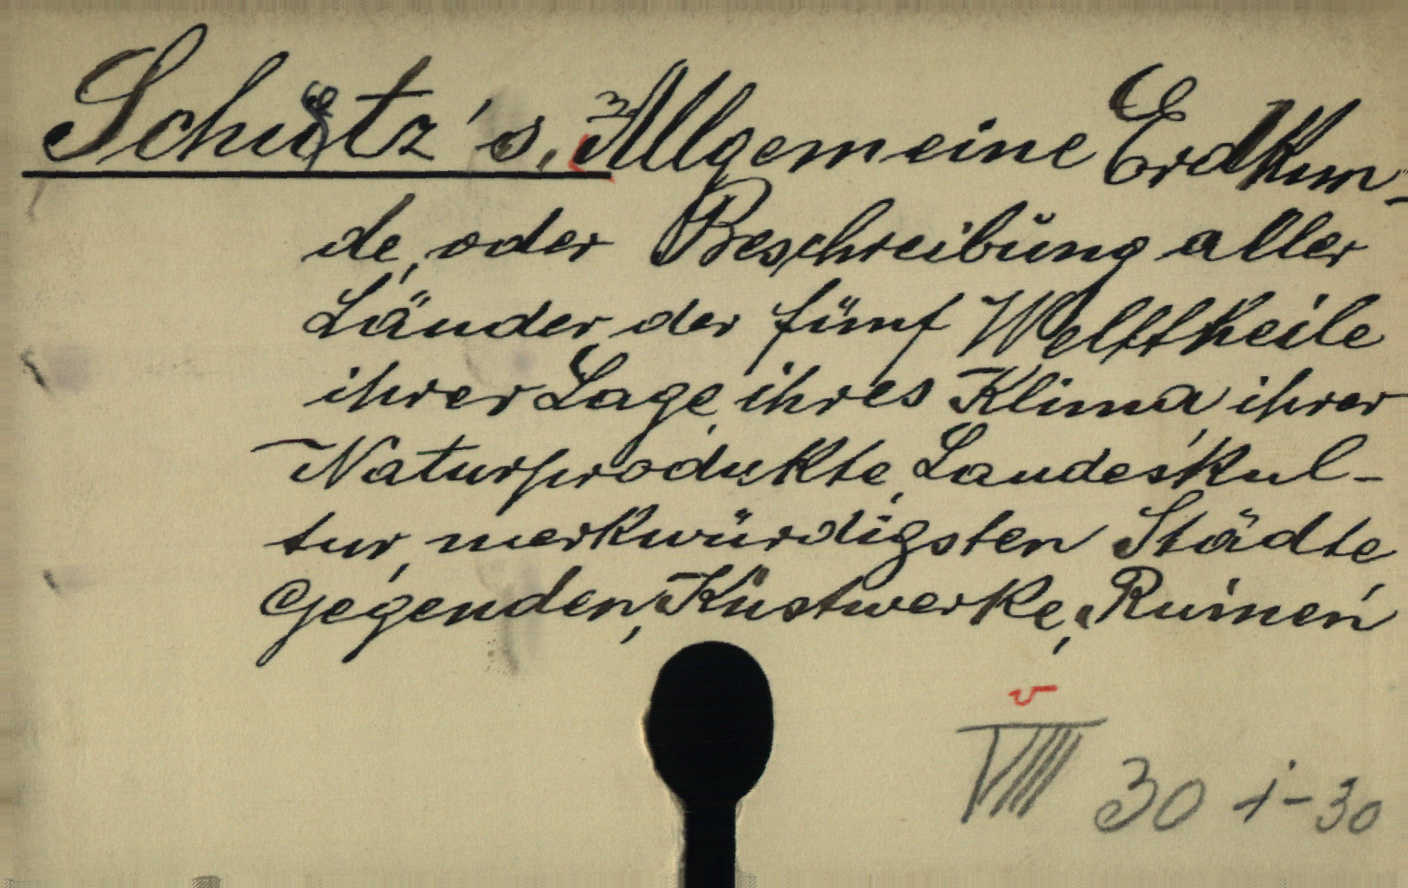 Schütz's, Allgemeine Erdkun-
de, oder Beschreibung aller
Länder der fünf Welttheile
ihrer Lage, ihres Klima, ihrer
Naturprodukte, Landeskul-
tur, merkwürdigsten Städte
Gegenden, Kustwerke, Ruinen
VIII 30 i-30